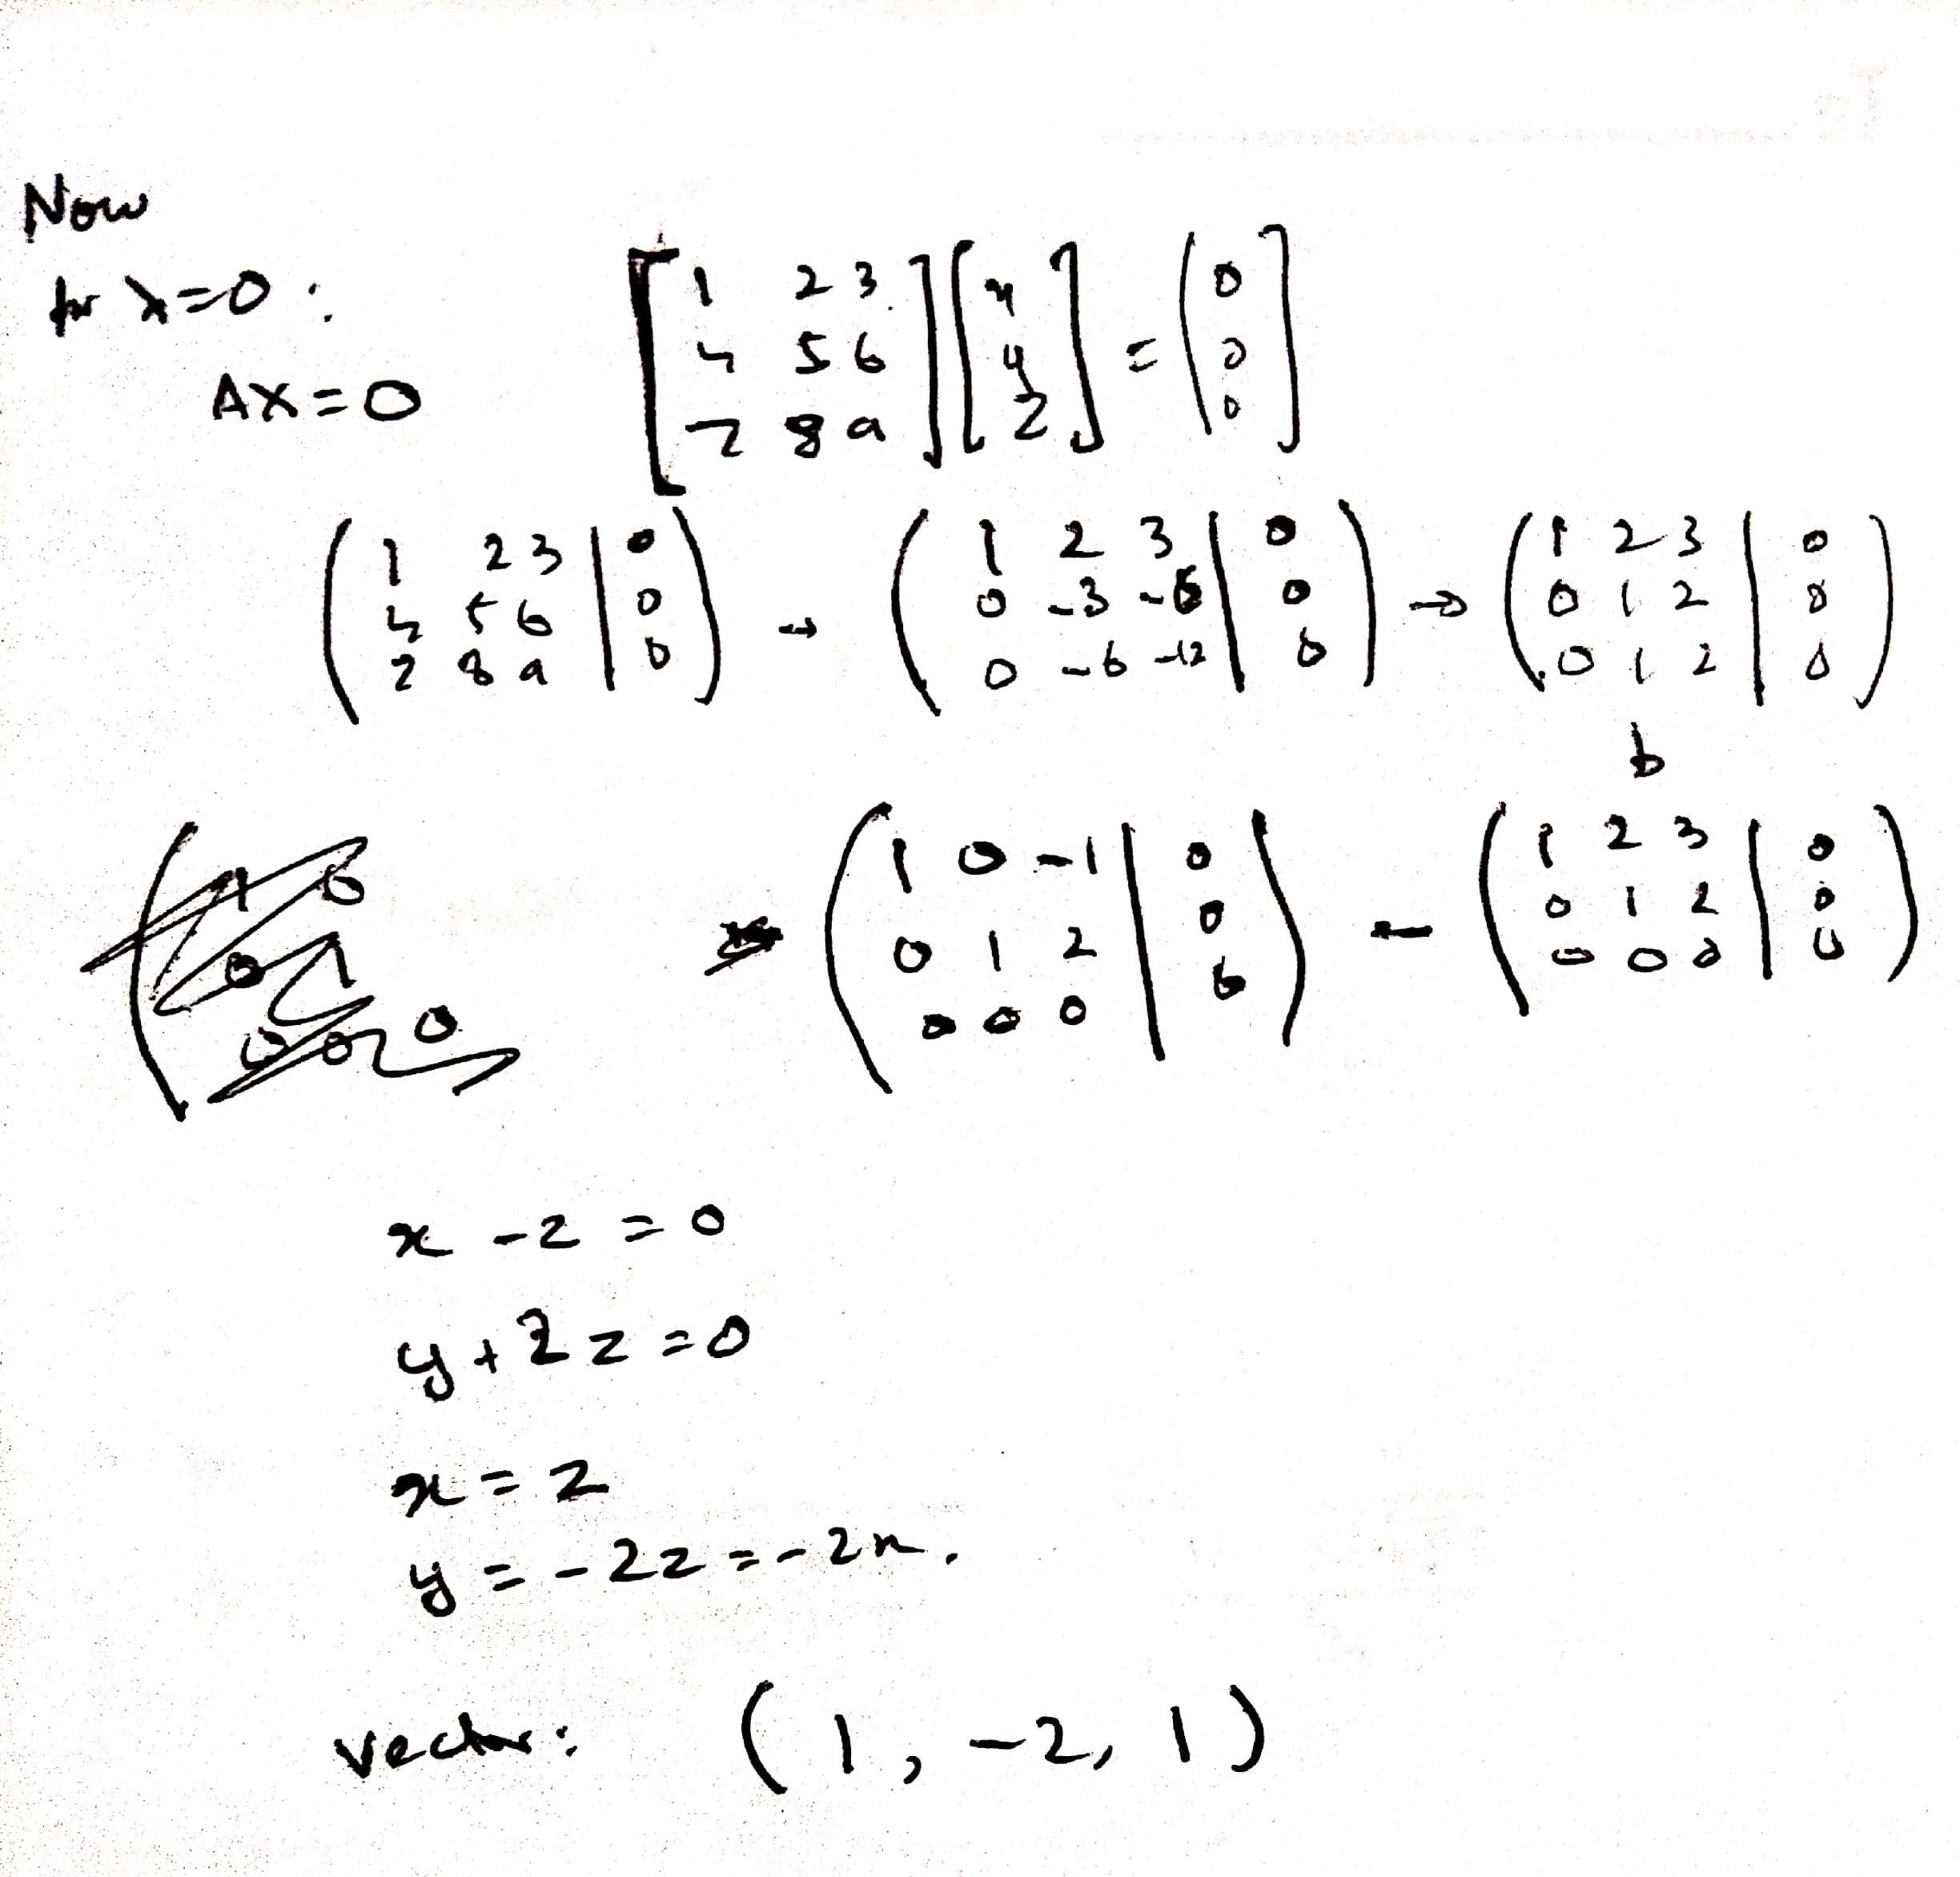 Now
for λ=0 :
AX=0
[1 2 3; 4 5 6; 7 8 9] [x; y; z] = [0; 0; 0]
(1 2 3 | 0; 4 5 6 | 0; 7 8 9 | 0) → (1 2 3 | 0; 0 -3 -6 | 0; 0 -6 -12 | 0) → (1 2 3 | 0; 0 1 2 | 0; 0 1 2 | 0)
(1 0 -1 | 0; 0 1 2 | 0; 0 0 0 | 0) ← (1 2 3 | 0; 0 1 2 | 0; 0 0 0 | 0)
x - z = 0
y + 2z = 0
x = z
y = -2z = -2x.
vector: (1, -2, 1)